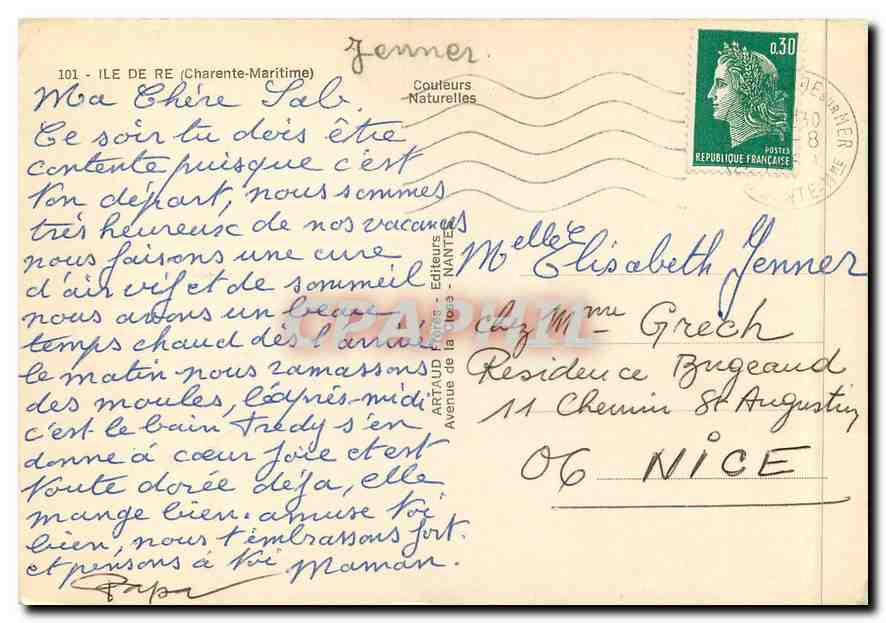 Jenner.
101 - ILE DE RE (Charente-Maritime)
Couleurs
Naturelles
0,30
POSTES
REPUBLIQUE FRANÇAISE
Ma Chère Sab.
Ce soir tu dois être
contente puisque c'est
ton départ, nous sommes
très heureux de nos vacances
nous faisons une cure
d'air vif et de sommeil
nous avons un beau
temps chaud dès l'arrivée
le matin nous ramassons
des moules, l'après-midi
c'est le bain Fredy s'en
donne à cœur joie et est
toute dorée déja, elle
mange bien. amuse toi
bien, nous t'embrassons fort.
et pensons à toi Maman.
Papa
ARTAUD Frères - Editeurs
Avenue de la Close - NANTES
Melle Elisabeth Jenner
chez Mme Grech
Residence Bugeaud
11 Chemin St Augustin
06 NICE
CPAPHIL